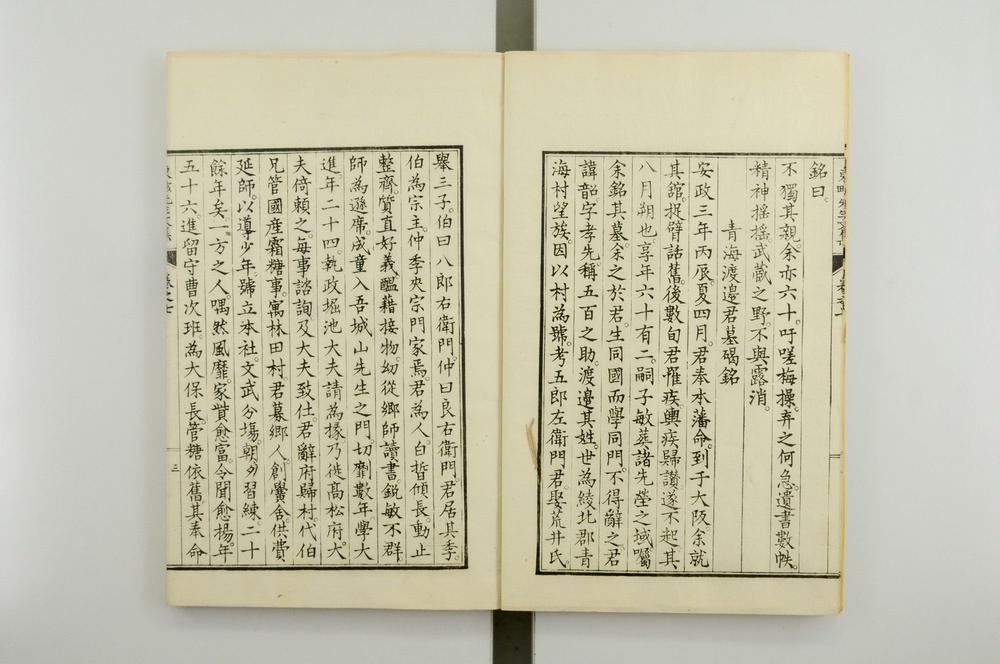 銘曰。
不獨其親。余亦六十。吁嗟梅操。弃之何急。遺書數帙。
精神揺揺。武藏之野。不與露消。
青海渡邉君墓碣銘
安政三年丙辰。夏四月。君奉本藩命。到于大阪。余就
其舘。捉臂話舊。後數旬。君罹疾。輿疾歸讃。遂不起。其
八月朔也。享年六十有二。嗣子敏。葬諸先塋之域。囑
余銘其墓。余之於君。生同國而學同門。不得辭之。君
諱韶。字孝先。稱五百之助。渡邉其姓。世為綾北郡青
海村望族。因以村為號。考五郎左衛門君。娶荒井氏。
舉三子。伯曰八郎右衛門。仲曰良右衛門。君居其季。
伯為宗主。仲季夾宗門家焉。君為人。白晳傾長。動止
整齊。質直好義。醞藉接物。幼從鄉師讀書。鋭敏不群。
師為遜席。成童入吾城山先生之門。切劘數年。學大
進。年二十四。執政堀池大夫請為掾。乃徙髙松府。大
夫倚頼之。毎事諮詢。及大夫致仕。君辭府歸村。代伯
兄管國産霜糖事。寓林田村。君募鄉人。創黌舎。供費
延師。以導少年。號立本社。文武分塲。朝夕習練。二十
餘年矣。一方之人。喁然風靡。家貲愈富。令聞愈揚。年
五十六。進留守曹次班。為大保長。菅糖依舊。其奉命
三